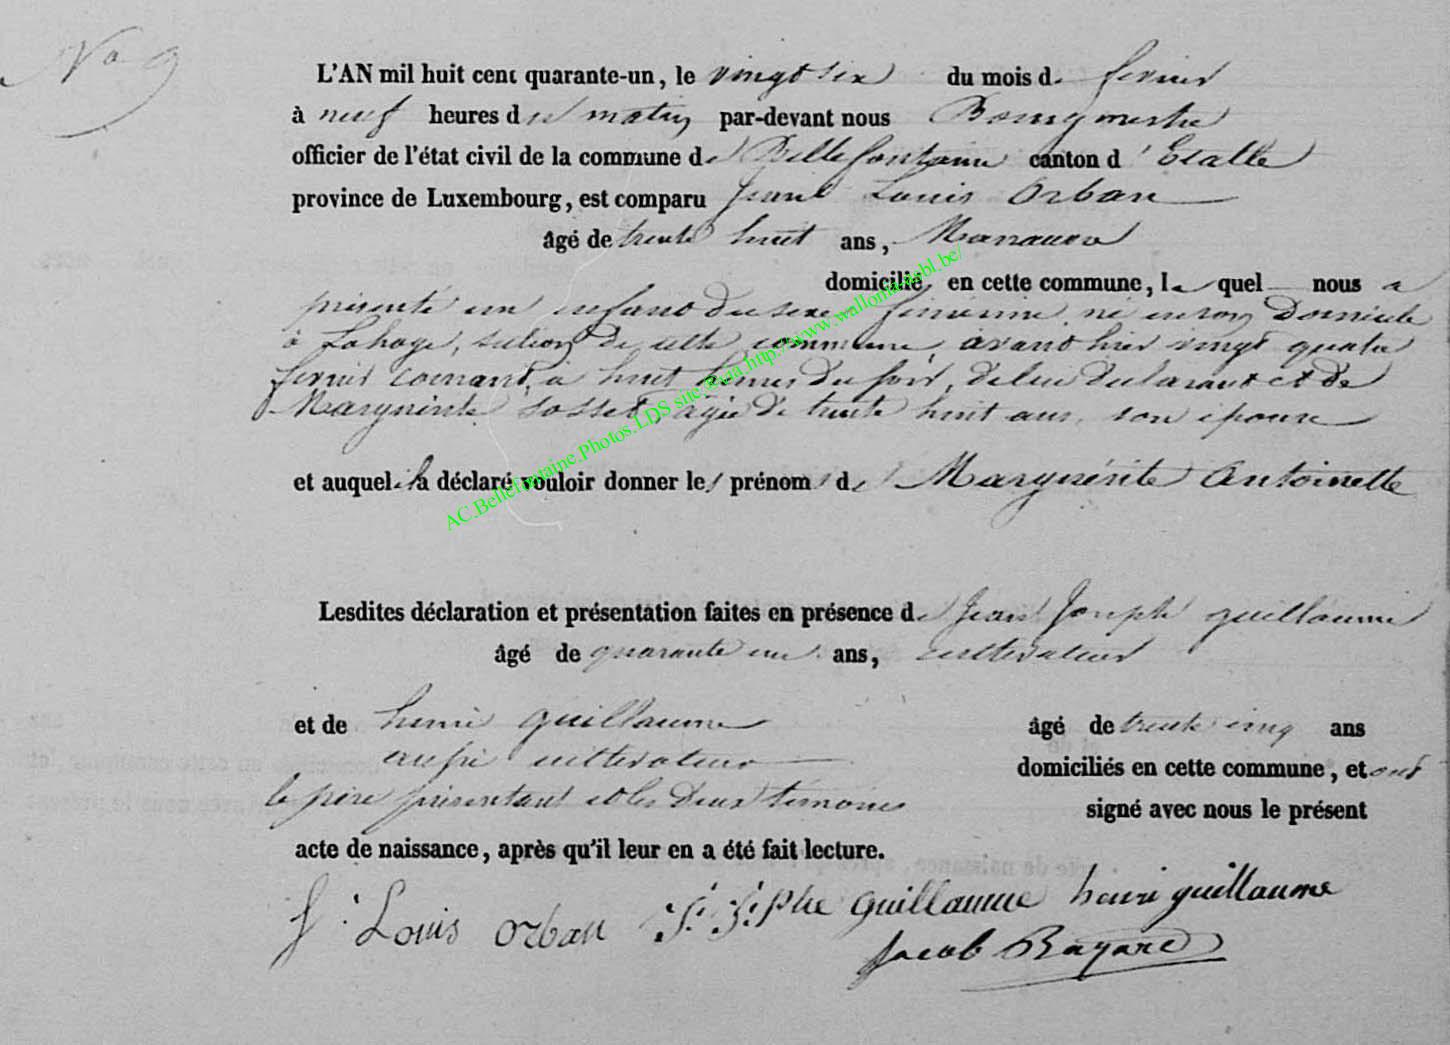 No 9
L'AN mil huit cent quarante-un, le vingt six du mois de fevrier
à neuf heures du matin par-devant nous Bourgmestre
officier de l'état civil de la commune de Bellefontaine canton d'Etalle
province de Luxembourg, est comparu Jean Louis Orban
âgé de trente huit ans, Manœuvre
domicilié en cette commune, lequel nous a
présenté un enfant du sexe feminin né en son Domicile
à Lahage, section de cette commune, avant hier vingt quatre
fevrier courant, à huit heures du soir, de lui declarant et de
Margueritte Sosset, agée de trente huit ans, son epouse
et auquel il a déclaré vouloir donner les prénoms de Marguérite Antoinette
Lesdites déclaration et présentation faites en présence de Jean Joseph guillaume
âgé de quarante un ans, cultivateur
et de henri guillaume âgé de trente cinq ans
aussi cultivateur domiciliés en cette commune, et ont
le père présentant et les deux témoins signé avec nous le présent
acte de naissance, après qu'il leur en a été fait lecture.
J. Louis Orban J. J:phe guillaume henri guillaume
Jacob Bayard
AC.Bellefontaine.Photos.LDS sur http://www.wallonia-asbl.be/